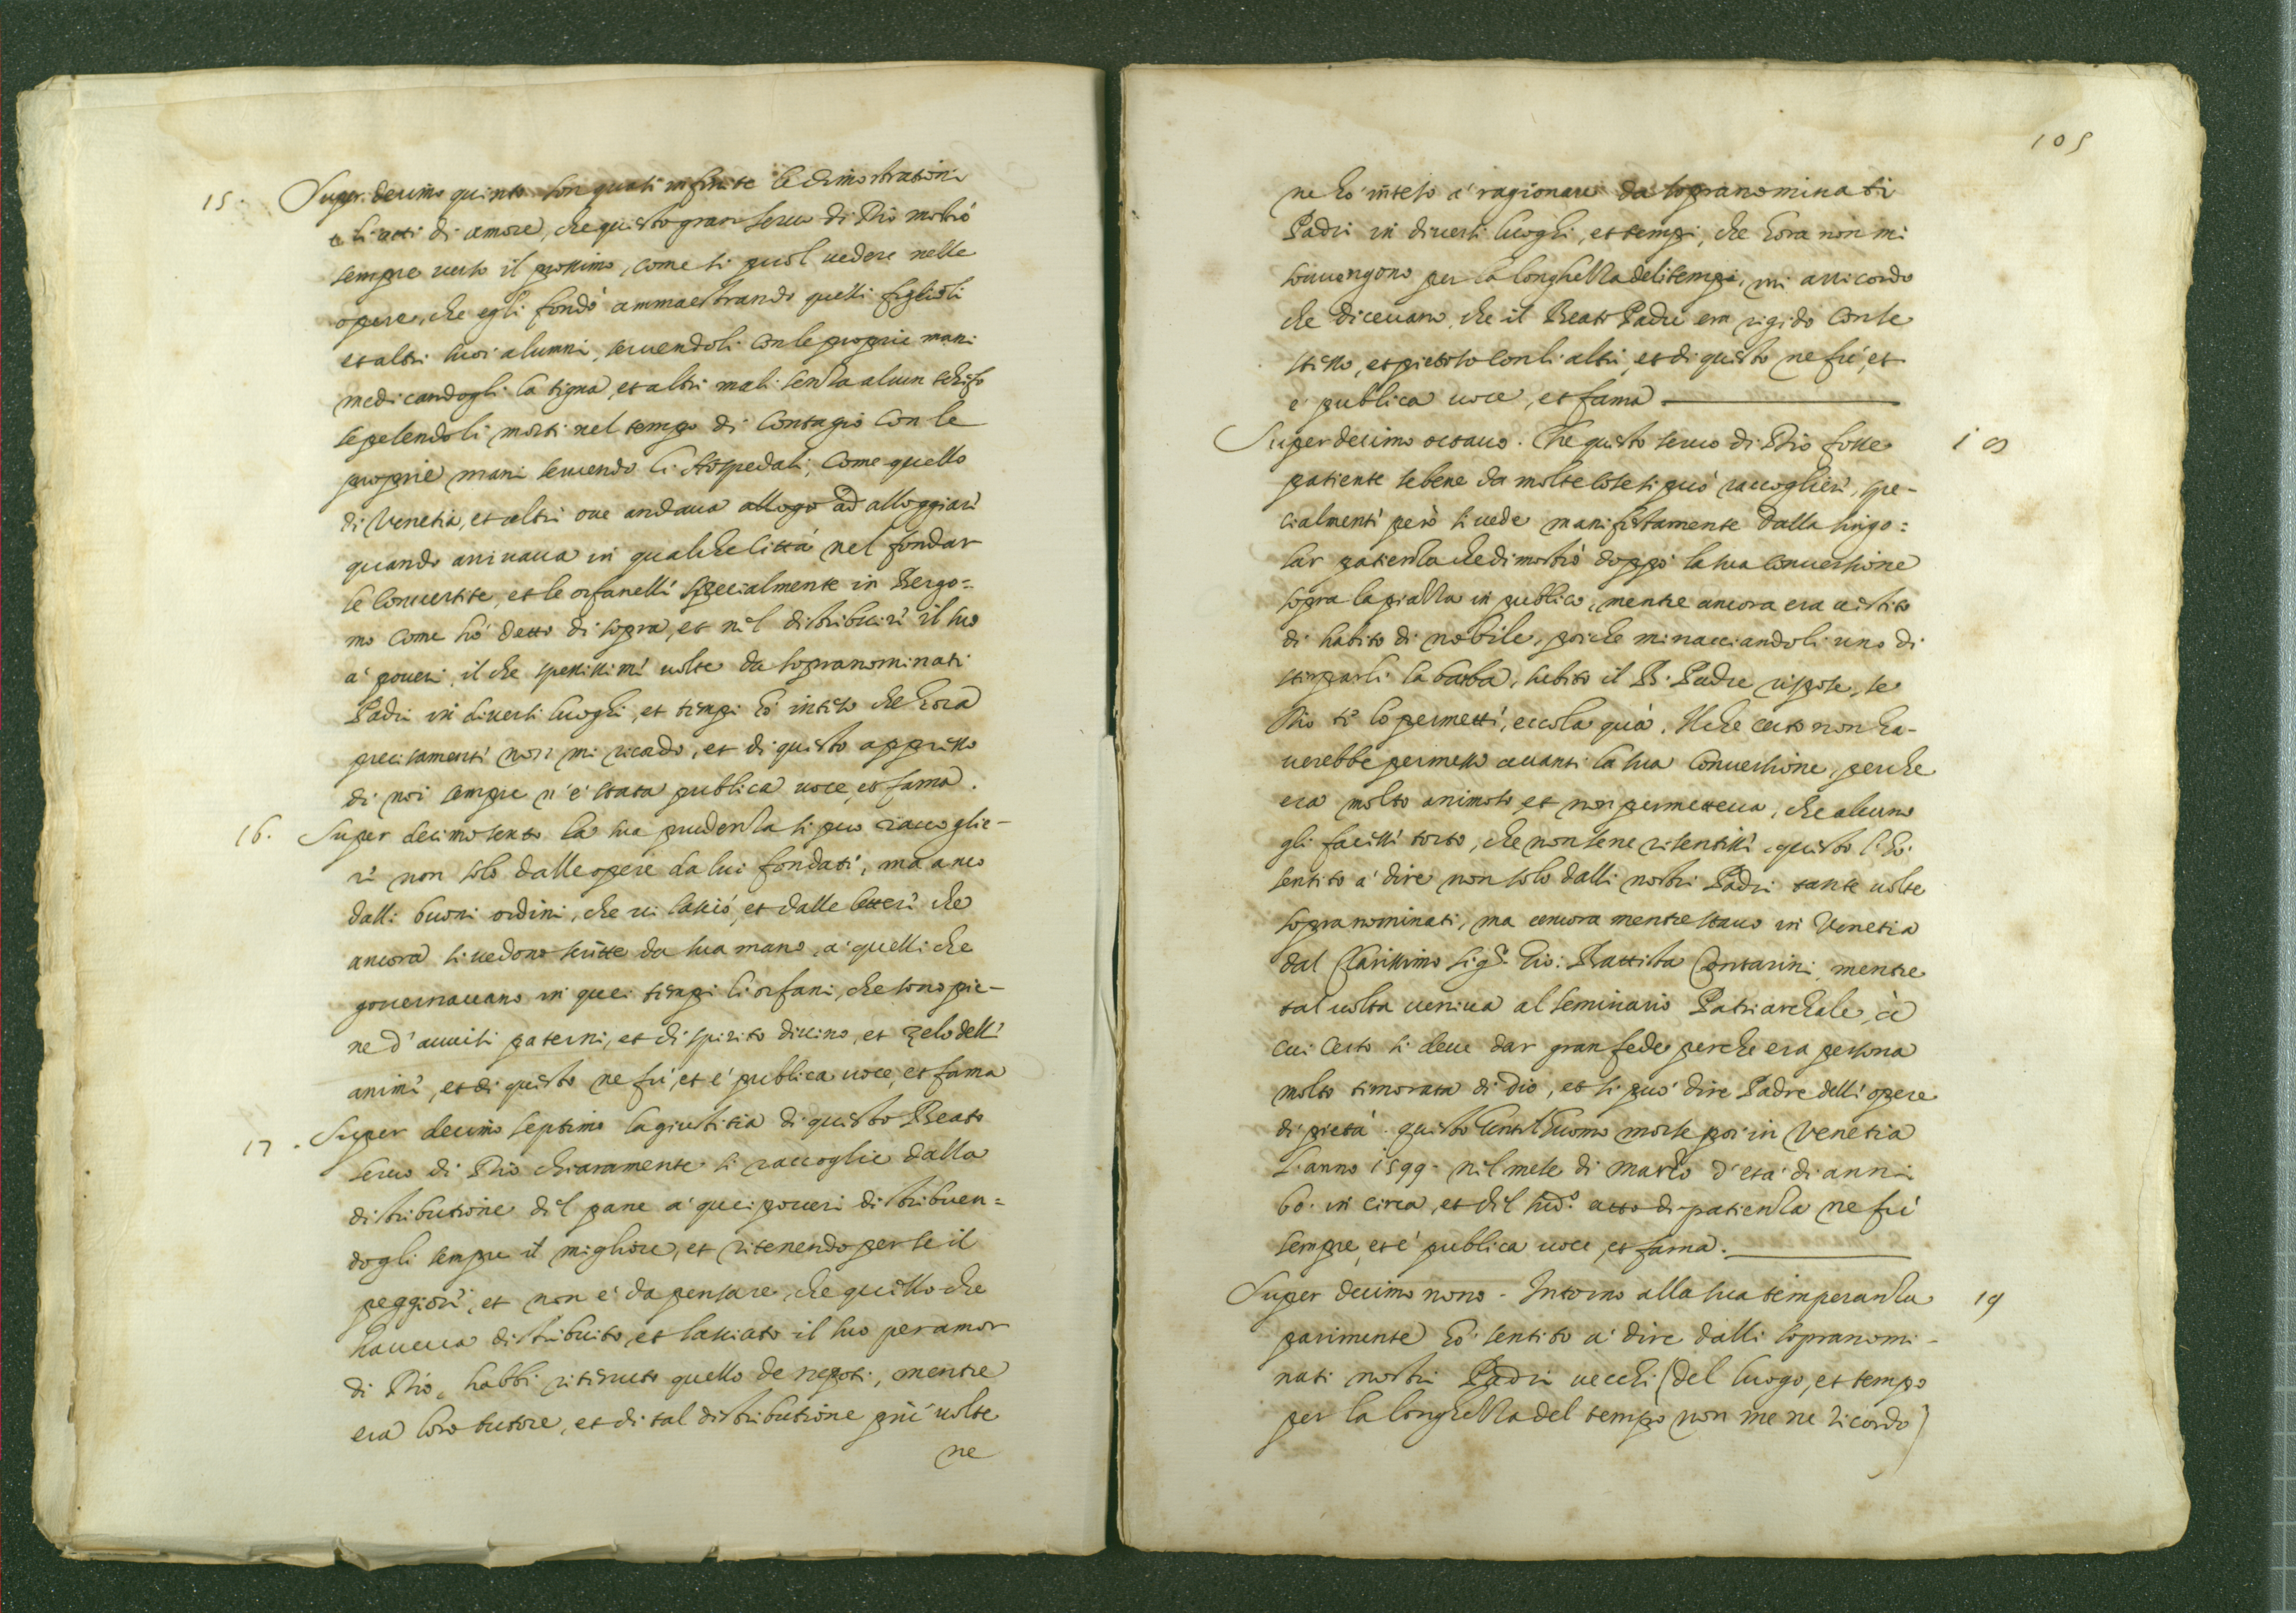 15. Super decimo quinto son quasi infinite le dimostrationi
e li atti di amore, che questo gran seruo di Dio mostrò
sempre uerso il prossimo, come si puol uedere nelle
opere, che egli fondò ammaestrando quelli figlioli
et altri suoi alumni, seruendoli con le proprie mani
medicandogli la tigna, et altri mali senza alcun schifo
sepelendoli morti nel tempo di Contagio con le
proprie mani seruendo li Hospedali, come quello
di Venetia, et altri oue andaua allogo ad alloggiari
quando arriuaua in qualche Città nel fondar
le Conuertite, et le orfanelli specialmente in Bergo=
mo come hò detto di sopra, et nel distribuiri il suo
a' poueri, il che spessissimi uolte da sopranominati
Padri in diuersi luoghi, et tempi hò inteso che hora
precisamenti non mi ricordo, et di questo appresso
di noi sempre n'è stata publica uoce, et fama.
16. Super decimo sexto la sua prudenza si puo raccoglie-
ri non solo dalle opere da lui fondati, ma anco
dalli buoni ordini, che ui lasciò, et dalle letteri che
ancora si uedono scritte da sua mano, a' quelli che
gouernauano in quei tempi li orfani, che sono pie-
ne d'auuisi paterni, et di spirito diuino, et zelo delli
animi, et di questo ne fù, et è publica uoce, et fama
17. Super decimo septimo la giustitia di questo Beato
seruo di Dio chiaramente si raccoglie dalla
distributione dil pane a' quei poueri distribuen=
dogli sempre il migliore, et ritenendo per se il
peggiori, et non è da pensare, che quello che
haueua distribuito, et lasciato il suo per amor
di Dio, habbi ritenuto quello de nepoti, mentre
era loro tutore, et di tal distributione più uolte
ne
105
ne hò inteso a' ragionari da sopranominati
Padri in diuersi luoghi, et tempi, che hora non mi
souuengono per la longhezza deli tempi, mi arricordo
che diceuano, che il Beato Padre era rigido con se
stesso, et pietoso con li altri, et di questo ne fù, et
è publica uoce, et fama
Super decimo octauo. Che questo seruo di Dio fosse 18
patiente se bene da molte cose si può raccoglieri, spe-
cialmenti però si uede manifestamente dalla singo=
lar patienza che dimostrò doppò la sua conuersione
sopra la piazza in publico, mentre ancora era uestito
di habito di nobile, poiche minacciandoli uno di
stirparli la barba, subito il B. Padre rispose, se
Dio ti lo permetti, eccola quà. Il che certo non ha-
uerebbe permesso auanti la sua Conuersione, perche
era molto animoso, et non permetteua, che alcuno
gli facessi torto, che non sene risentissi, questo l'hò
sentito a' dire non solo dalli nostri Padri tante uolte
sopranominati, ma ancora mentre stauo in Venetia
dal Clarissimo Sigr. Gio: Battista Contarini, mentre
tal uolta ueniua al seminario Patriarchale, à
cui certo si deue dar gran fede perche era persona
molto timorata di Dio, et si può dire Padre delli opere
di pietà. questo Gentilhuomo morse poi in Venetia
l'anno 1599. nil mese di marzo d'età di anni
60. in circa, et dil sudo. atto di patienza ne fù
sempre, et è publica uoce, et fama.
Super decimo nono. Intorno alla sua temperanza 19
parimente hò sentito a' dire dalli sopranomi-
nati nostri Padri uecchi (del luogo, et tempo
per la longhezza del tempo non me ne ricordo)